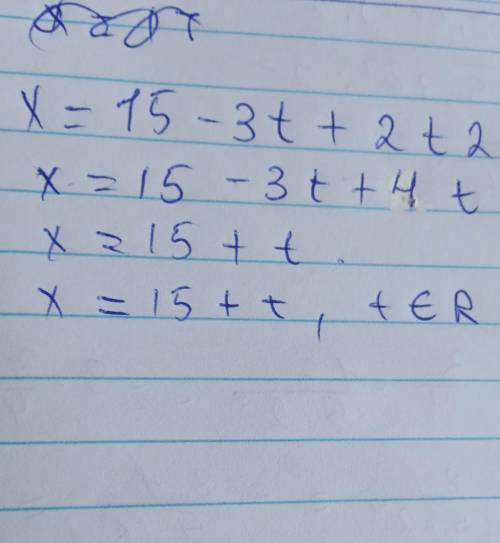 x = 15 - 3t + 2 t 2
x = 15 - 3t + 4 t
x = 15 + t .
x = 15 + t , t ∈ R